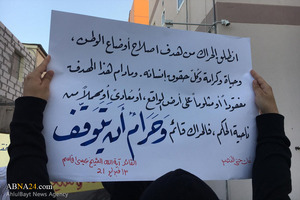 انطلق الحراك من هدف إصلاح أوضاع الوطن،
وحياة وكرامة وكل حقوق إنسانه. ومادام هذا الهدف
مفقوداً أو مثلوماً على أرض الواقع، أو معادى أو مهملاً من
ناحية الحكم، فالحراك قائم وحرام أن يتوقف
القائد آية الله الشيخ عيسى قاسم
١٣ فبراير 21
ABNA24.com
AhlulBayt News Agency